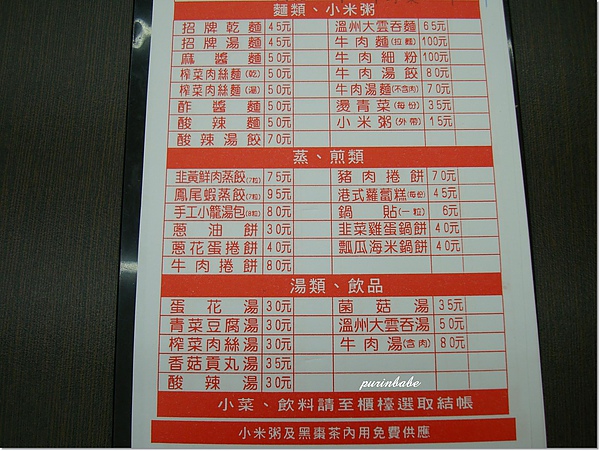 麵類、小米粥
招牌乾麵 45元 溫州大雲吞麵 65元
招牌湯麵 45元 牛肉麵(拉麵) 100元
麻醬麵 50元 牛肉細粉 100元
榨菜肉絲麵(乾) 50元 牛肉湯餃 80元
榨菜肉絲麵(湯) 50元 牛肉湯麵(不含肉) 70元
酢醬麵 50元 燙青菜(每份) 35元
酸辣麵 50元 小米粥(外帶) 15元
酸辣湯餃 70元
蒸、煎類
韭黃鮮肉蒸餃(7粒) 75元 豬肉捲餅 70元
鳳尾蝦蒸餃(7粒) 95元 港式蘿蔔糕(每份) 45元
手工小籠湯包(8粒) 80元 鍋貼(一粒) 6元
蔥油餅 30元 韭菜雞蛋鍋餅 40元
蔥花蛋捲餅 40元 瓢瓜海米鍋餅 40元
牛肉捲餅 80元
湯類、飲品
蛋花湯 30元 菌菇湯 35元
青菜豆腐湯 30元 溫州大雲吞湯 50元
榨菜肉絲湯 30元 牛肉湯(含肉) 80元
香菇貢丸湯 35元
酸辣湯 30元
purinbabe
小菜、飲料請至櫃檯選取結帳
小米粥及黑棗茶內用免費供應